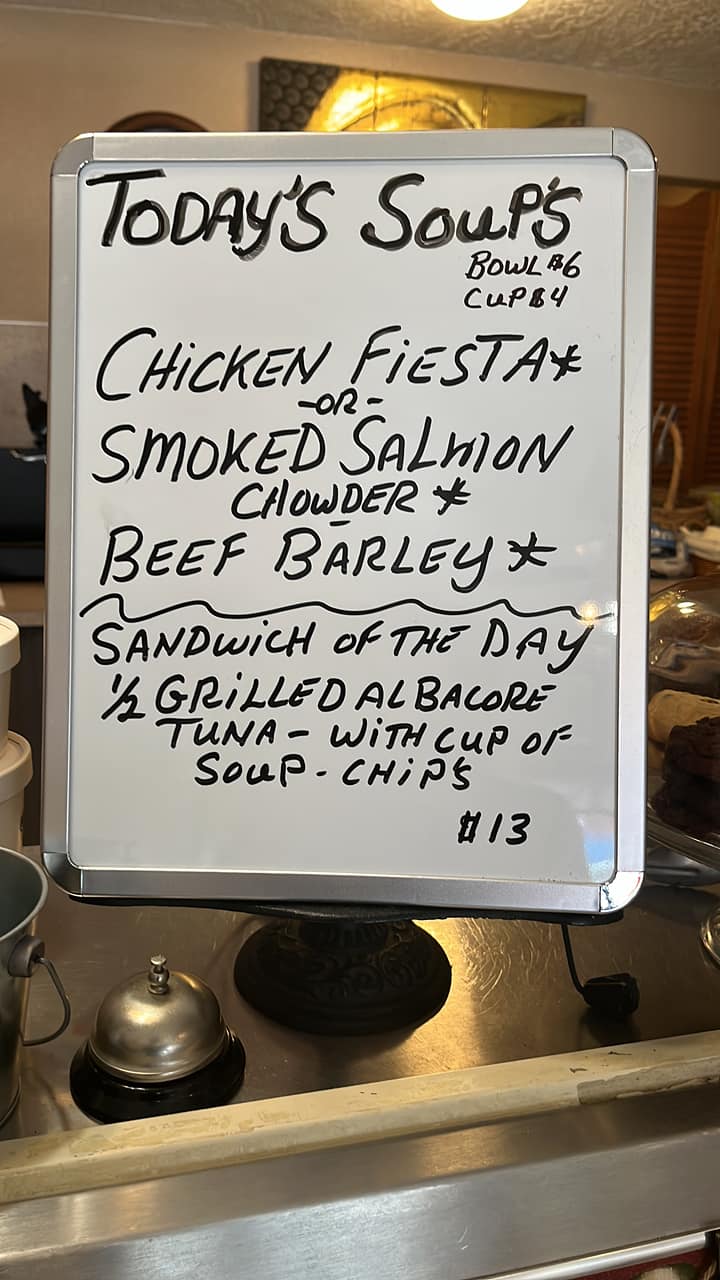 TODAY'S SOUP'S
BOWL $6
CUP $4
CHICKEN FIESTA*
-OR-
SMOKED SALMON
CHOWDER *
-
BEEF BARLEY *
SANDWICH OF THE DAY
1/2 GRILLED ALBACORE
TUNA - WITH CUP OF
SOUP - CHIPS
$13